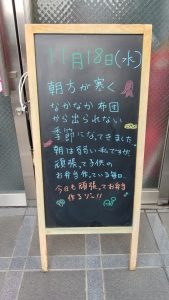 11月18日(水)
朝方が寒く
なかなか布団
から出られない
季節になってきました
朝は弱い私ですが
頑張って子供の
お弁当作っている毎日
今日も頑張ってお弁当
作るゾー!!